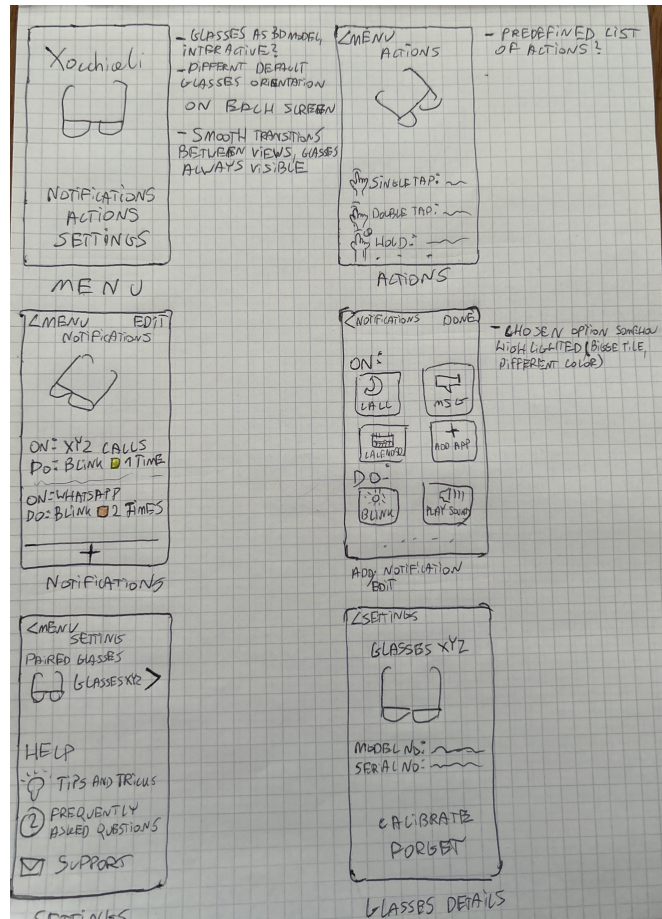 Xocchiali
NOTIFICATIONS
ACTIONS
SETTINGS
MENU
- GLASSES AS 3D MODEL,
INTERACTIVE?
- DIFFERENT DEFAULT
GLASSES ORIENTATION
ON EACH SCREEN
- SMOOTH TRANSITIONS
BETWEEN VIEWS, GLASSES
ALWAYS VISIBLE
<MENU
ACTIONS
SINGLE TAP:
DOUBLE TAP:
HOLD:
ACTIONS
- PREDEFINED LIST
OF ACTIONS?
<MENU EDIT
NOTIFICATIONS
ON: XYZ CALLS
DO: BLINK 1 TIME
ON: WHATSAPP
DO: BLINK 2 TIMES
+
NOTIFICATIONS
<NOTIFICATIONS DONE
ON:
CALL
MSG
CALENDAR
+
ADD APP
DO:
BLINK
PLAY SOUND
ADD NOTIFICATION
EDIT
- CHOSEN OPTION SOMEHOW
HIGHLIGHTED (BIGGE TILE,
DIFFERENT COLOR)
<MENU
SETTING
PAIRED GLASSES
GLASSES XYZ >
HELP
TIPS AND TRICKS
? FREQUENTLY
ASKED QUESTIONS
SUPPORT
SETTINGS
<SETTINGS
GLASSES XYZ
MODEL NO:
SERAL NO:
CALIBRATE
FORGET
GLASSES DETAILS